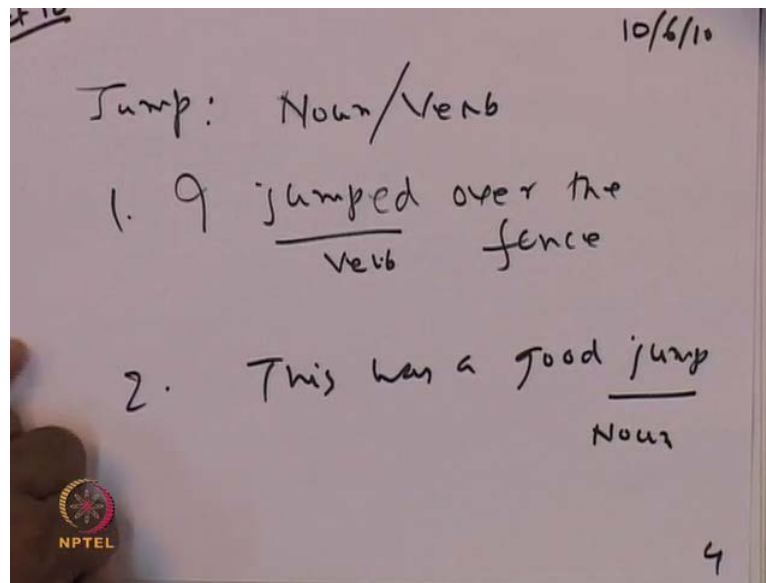 10/6/10
Jump: Noun/Verb
1. I jumped over the
Verb fence
2. This was a good jump
Noun
NPTEL
4